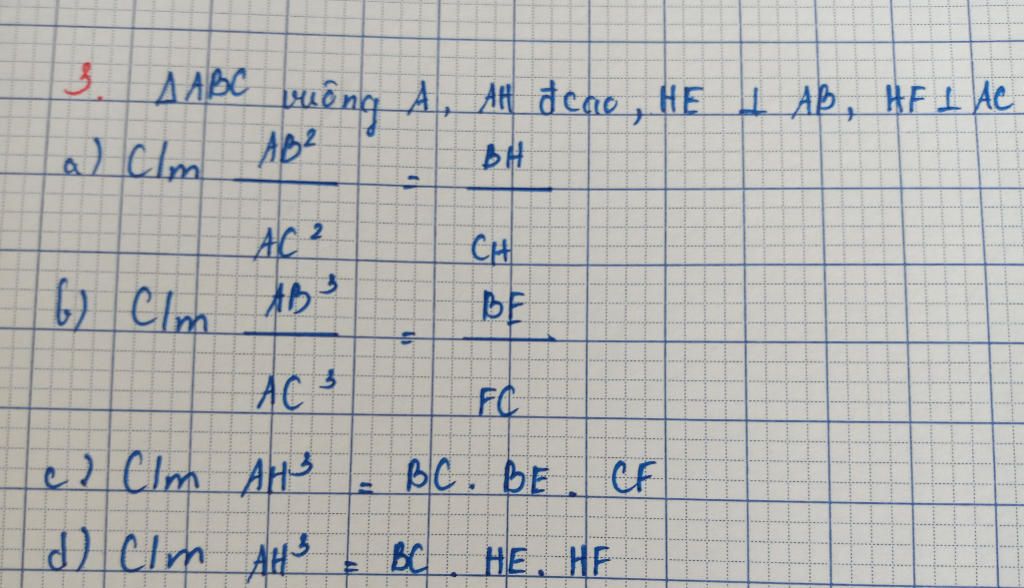 3. ΔABC vuông A, AH đcao, HE ⊥ AB, HF ⊥ AC
a) C/m AB² / AC² = BH / CH
b) C/m AB³ / AC³ = BE / FC
c) C/m AH³ = BC . BE . CF
d) C/m AH³ = BC . HE . HF